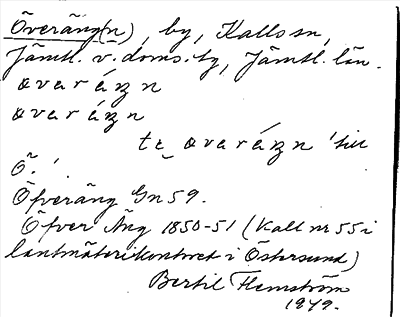 Överäng(n), by, Kalls sn,
Jämtl. v. doms.tg, Jämtl. län.
øvaráẓn
øvaráẓn
tε̮ øvaráẓn 'till
Ö.'.
Öfveräng Gn 59.
Öfver Äng 1850-51 (Kall nr 55 i
lantmäterikontoret i Östersund)
Bertil Flemström
1949.